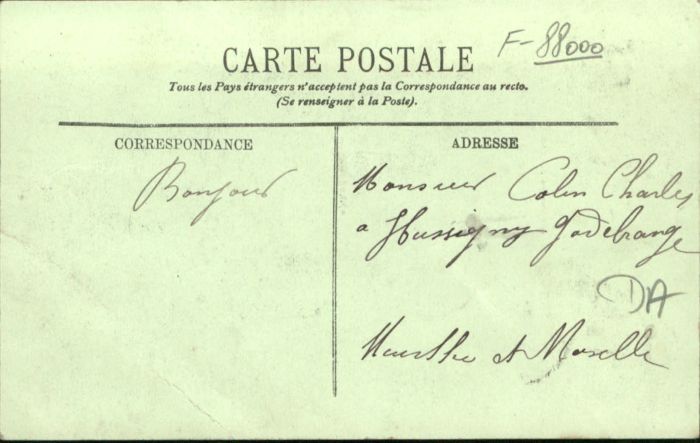 CARTE POSTALE
F-88000
Tous les Pays étrangers n'acceptent pas la Correspondance au recto.
(Se renseigner à la Poste).
CORRESPONDANCE
Bonjour
ADRESSE
Monsieur Colin Charles
a Hussigny Godbrange
DA
Meurthe et Moselle